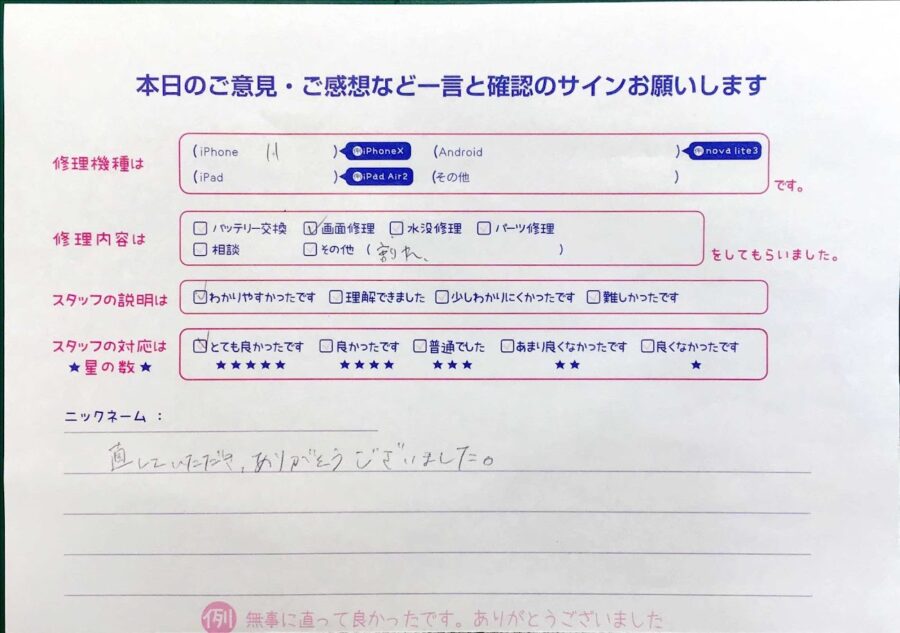 本日のご意見・ご感想など一言と確認のサインお願いします
修理機種は
(iPhone 11 ) 例iPhoneX (Android ) 例nova lite3
(iPad ) 例iPad Air2 (その他 )
です。
修理内容は
バッテリー交換 画面修理 水没修理 パーツ修理
相談 その他 ( 割れ、 )
をしてもらいました。
スタッフの説明は わかりやすかったです 理解できました 少しわかりにくかったです 難しかったです
スタッフの対応は とても良かったです 良かったです 普通でした あまり良くなかったです 良くなかったです
★星の数★ ★★★★★ ★★★★ ★★★ ★★ ★
ニックネーム：
直していただき、ありがとうございました。
例 無事に直って良かったです。ありがとうございました